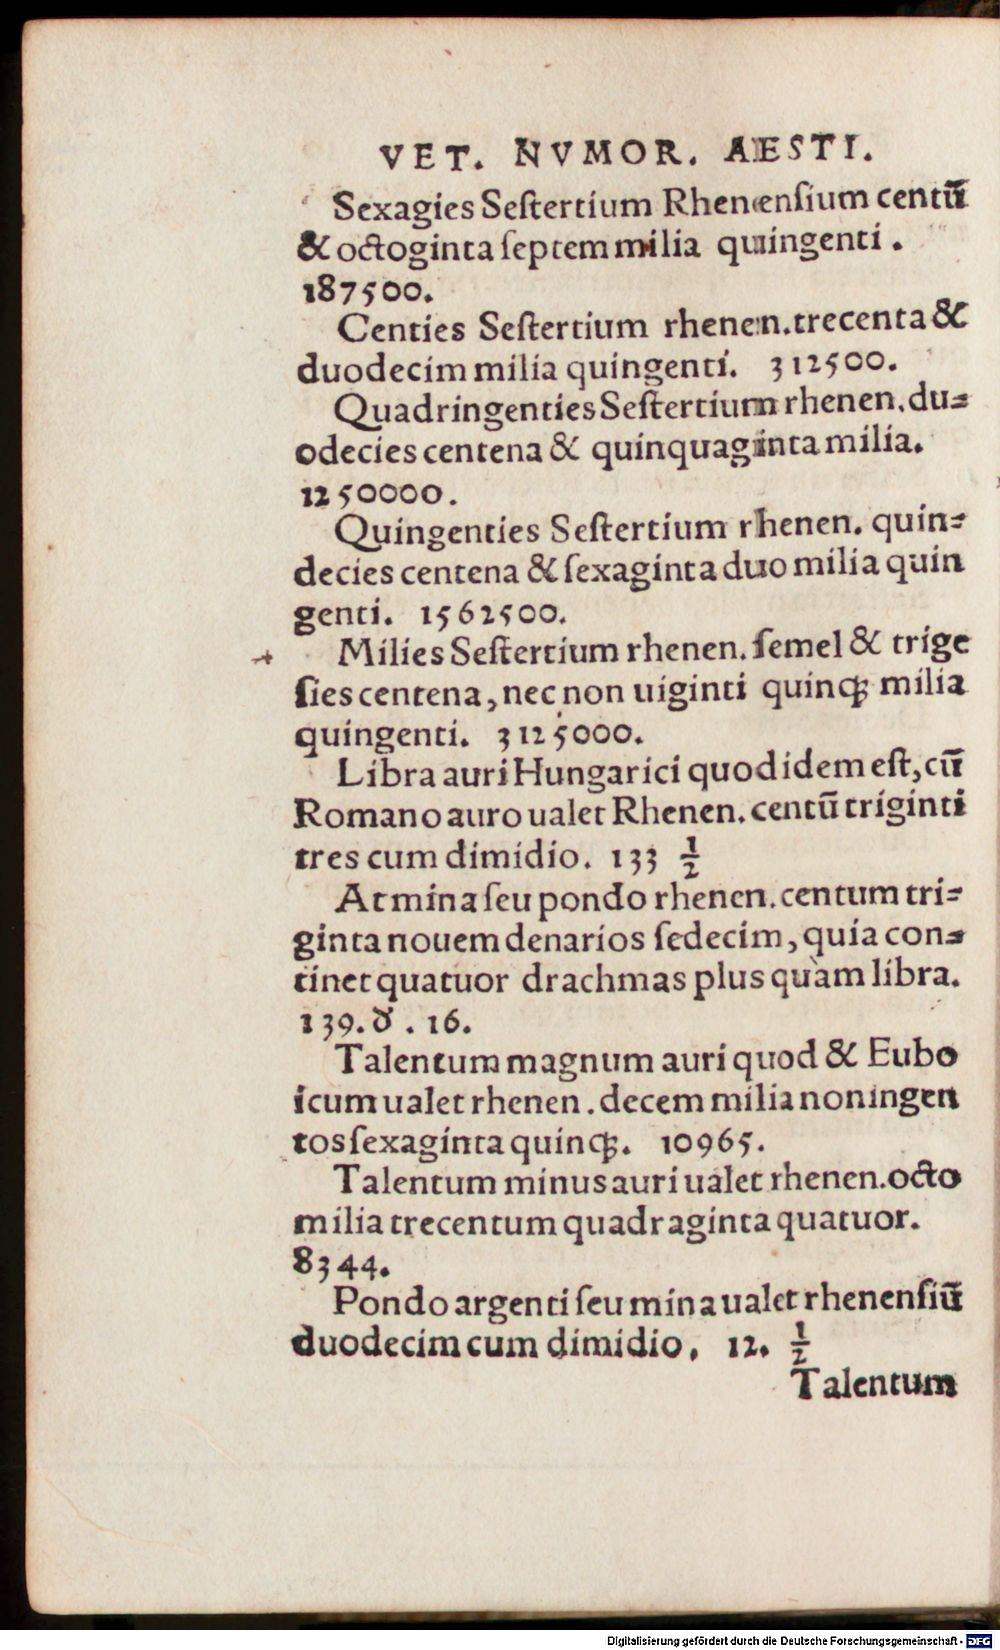 VET. NVMOR. AESTI.
Sexagies Seſtertium Rhenenſium centũ
& octoginta ſeptem milia quingenti.
187500.
Centies Seſtertium rhenen. trecenta &
duodecim milia quingenti. 312500.
Quadringenties Seſtertium rhenen. du⸗
odecies centena & quinquaginta milia.
1250000.
Quingenties Seſtertium rhenen. quin⸗
decies centena & ſexaginta duo milia quin
genti. 1562500.
Milies Seſtertium rhenen. ſemel & trige
ſies centena, nec non uiginti quinqꝫ milia
quingenti. 3125000.
Libra auri Hungarici quod idem eſt, cũ
Romano auro ualet Rhenen. centũ triginti
tres cum dimidio. 133 1/2
At mina ſeu pondo rhenen. centum tri⸗
ginta nouem denarios ſedecim, quia con⸗
tinet quatuor drachmas plus quàm libra.
139. ꝺ. 16.
Talentum magnum auri quod & Eubo
icum ualet rhenen. decem milia noningen
tos ſexaginta quinqꝫ. 10965.
Talentum minus auri ualet rhenen. octo
milia trecentum quadraginta quatuor.
8344.
Pondo argenti ſeu mina ualet rhenenſiũ
duodecim cum dimidio. 12. 1/2
Talentum
Digitalisierung gefördert durch die Deutsche Forschungsgemeinschaft - DFG